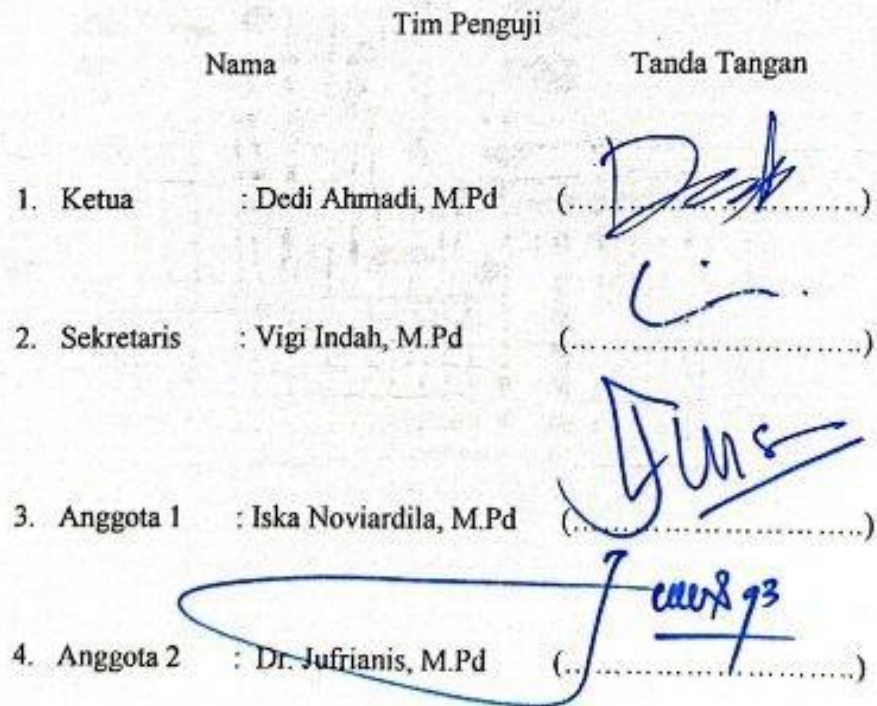 Tim Penguji
Nama Tanda Tangan
1. Ketua : Dedi Ahmadi, M.Pd (..............................)
2. Sekretaris : Vigi Indah, M.Pd (..............................)
3. Anggota 1 : Iska Noviardila, M.Pd (..............................)
4. Anggota 2 : Dr. Jufrianis, M.Pd (..............................)